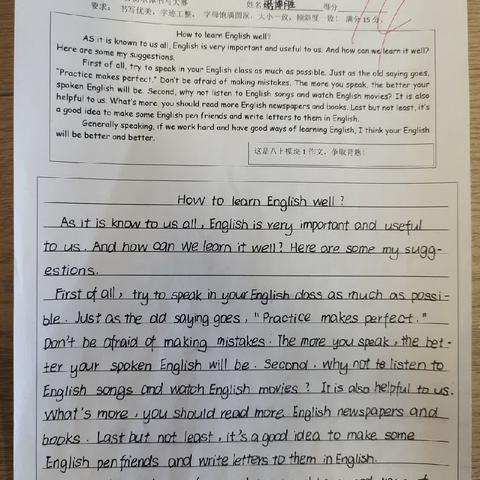 要求： 书写优美，字迹工整， 字母饱满圆滚，大小一致，倾斜度一致！ 满分 15 分
姓名 得分
14
How to learn English well?
AS it is known to us all, English is very important and useful to us. And how can we learn it well?
Here are some my suggestions.
First of all, try to speak in your English class as much as possible. Just as the old saying goes,
"Practice makes perfect." Don't be afraid of making mistakes. The more you speak, the better your
spoken English will be. Second, why not listen to English songs and watch English movies? It is also
helpful to us. What's more, you should read more English newspapers and books. Last but not least, it's
a good idea to make some English pen friends and write letters to them in English.
Generally speaking, if we work hard and have good ways of learning English, I think your English
will be better and better.
这是八上模块 1 作文，争取背熟！
How to learn English well ?
As it is know to us all , English is very important and useful
to us . And how can we learn it well? Here are some my sugg-
estions.
First of all , try to speak in your English class as much as possi-
ble . Just as the old saying goes , "Practice makes perfect."
Don't be afraid of making mistakes . The more you speak , the bet-
ter your spoken English will be . Second , why not to listen to
English songs and watch English movies ? It is also helpful to us.
What's more , you should read more English newspapers and
books . Last but not least , it's a good idea to make some
English pen friends and write letters to them in English.